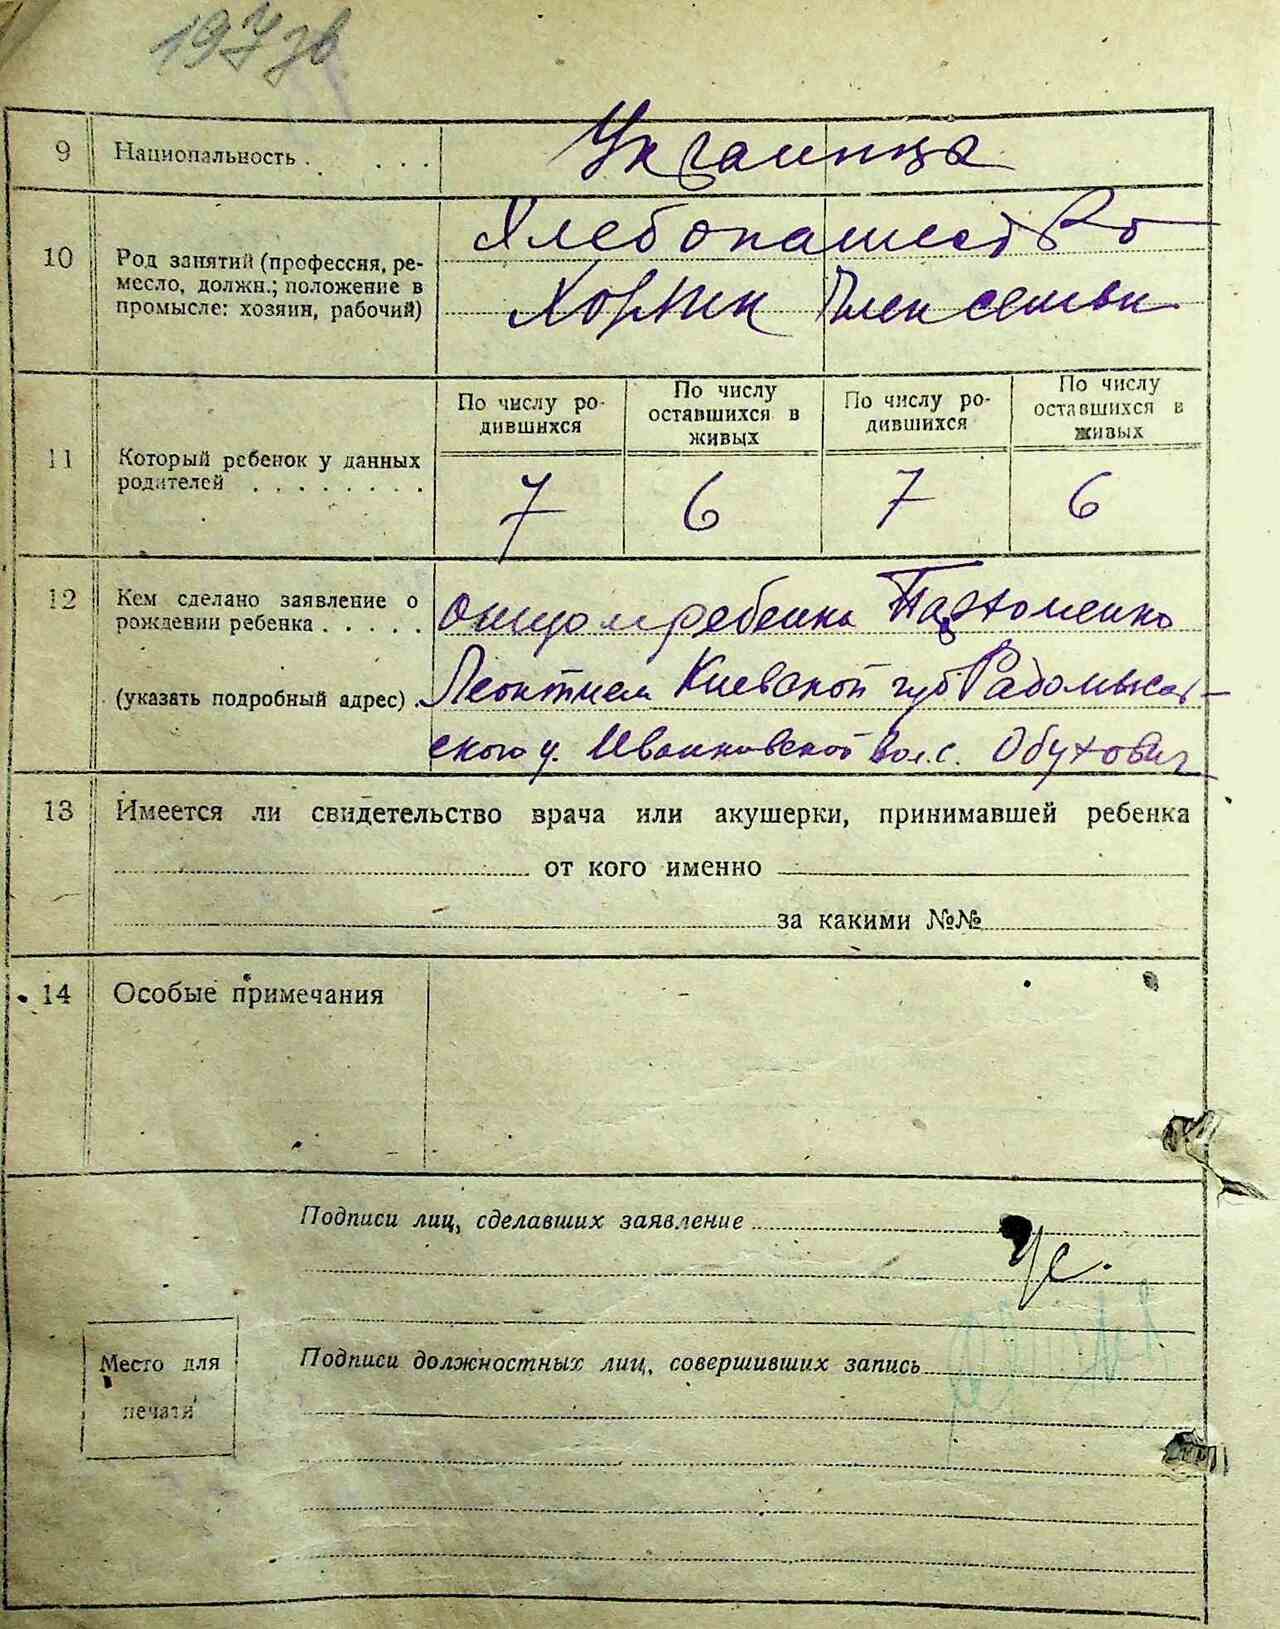 197 зв
9 Национальность . . . . Украинцы
10 Род занятий (профессия, ре-
месло, должн.; положение в
промысле: хозяин, рабочий)
Хлебопашество
Хозяин Член семьи
11 Который ребенок у данных
родителей . . . . . . . .
По числу ро-
дившихся
По числу
оставшихся в
живых
По числу ро-
дившихся
По числу
оставшихся в
живых
7 6 7 6
12 Кем сделано заявление о
рождении ребенка . . . . .
(указать подробный адрес) .
Отцом ребенка Пархоменко
Леонтием Киевской губ Радомысль-
ского у. Иванковской вол. с. Обухович
13 Имеется ли свидетельство врача или акушерки, принимавшей ребенка
от кого именно
за какими №№
14 Особые примечания
Подписи лиц, сделавших заявление
Место для
печати
Подписи должностных лиц, совершивших запись